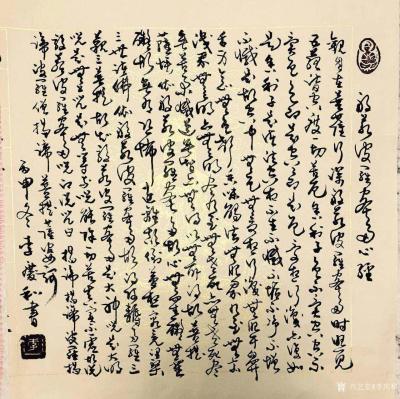 般若波羅蜜多心經
觀自在菩薩行深般若波羅蜜多時照見
五蘊皆空度一切苦厄舍利子色不異空空不異
色色即是空空即是色受想行識亦復如
是舍利子是諸法空相不生不滅不垢不淨不增
不減是故空中無色無受想行識無眼耳鼻
舌身意無色聲香味觸法無眼界乃至無意
識界無無明亦無無明盡乃至無老死亦無老死盡
無苦集滅道無智亦無得以無所得故菩提
薩埵依般若波羅蜜多故心無罣礙無罣
礙故無有恐怖遠離顛倒夢想究竟涅槃
三世諸佛依般若波羅蜜多故得阿耨多羅三
藐三菩提故知般若波羅蜜多是大神咒是大明
咒是無上咒是無等等咒能除一切苦真實不虛故說
般若波羅蜜多咒即說咒曰揭諦揭諦波羅揭
諦波羅僧揭諦菩提薩婆訶
丙申冬李和書